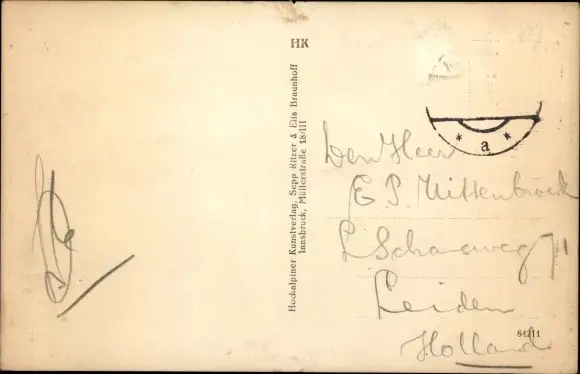 HK
Hochalpiner Kunstverlag, Sepp Ritzer & Elis Braunhoff
Innsbruck, Müllerstraße 18/III
* a *
Den Heer
E. P. Mittenbroek
L
Leiden
Holland
84211